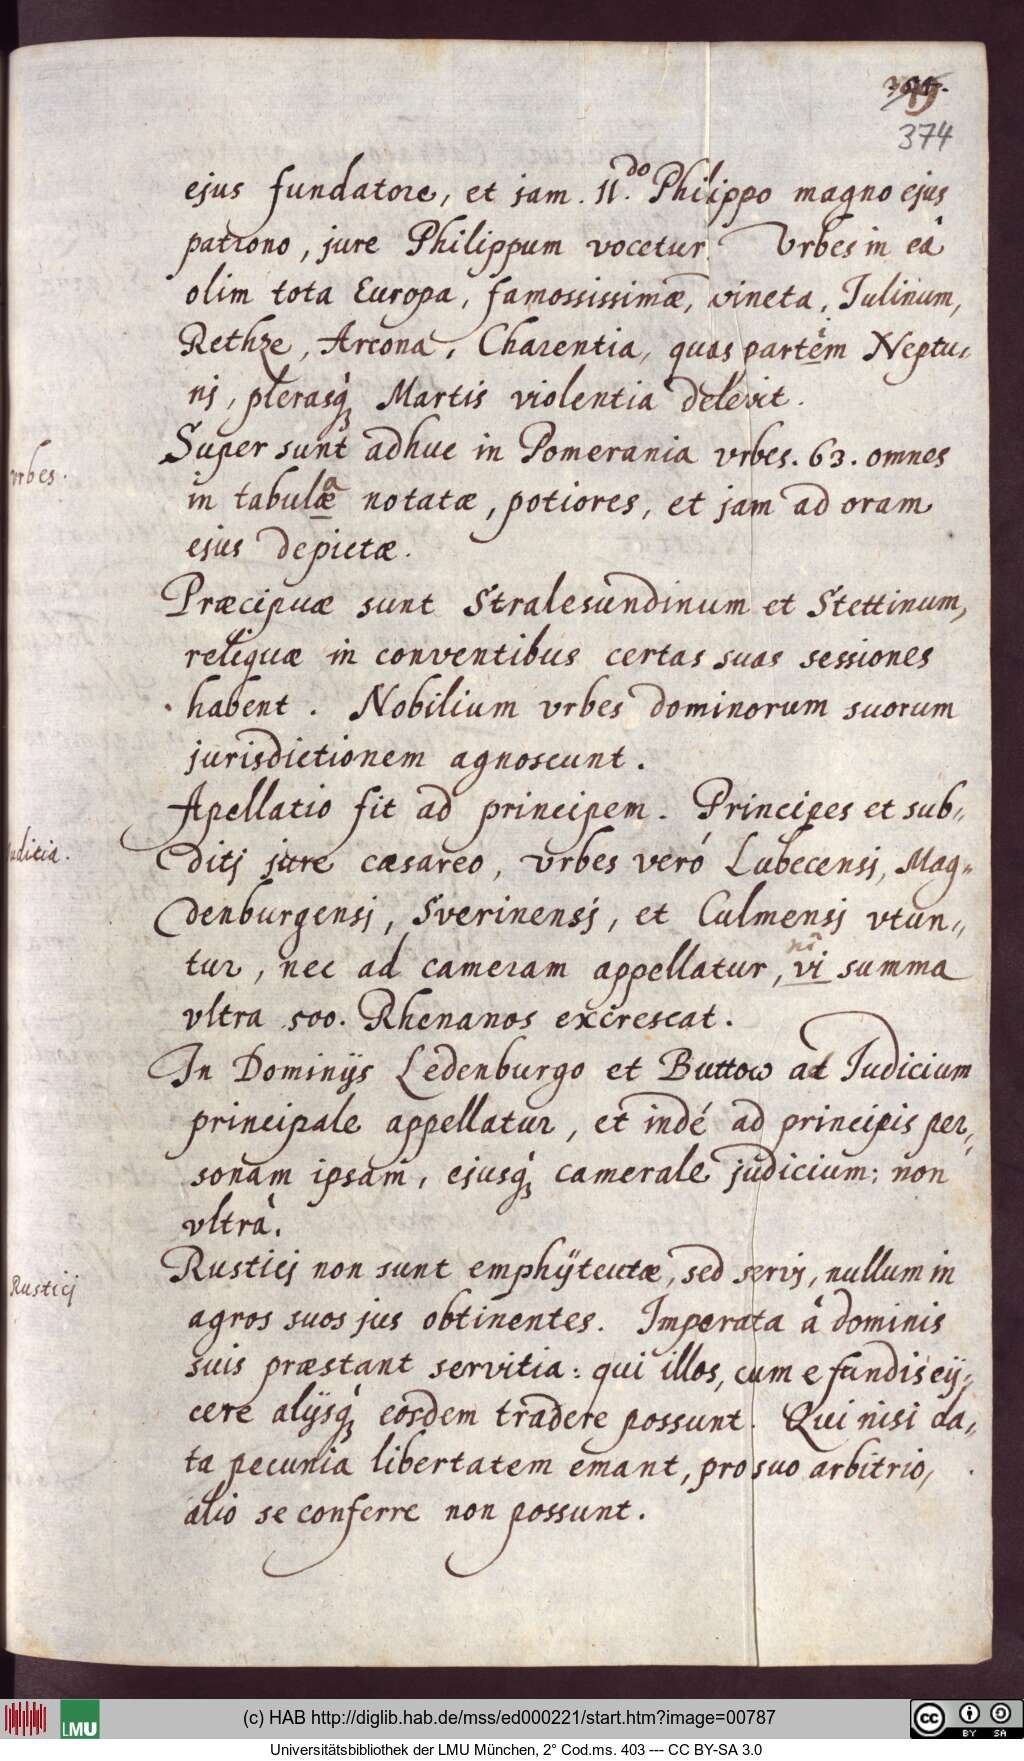 374
ejus fundatore, et jam. II.do Philippo magno ejus
patrono, jure Philippum vocetur. Vrbes in eâ
olim tota Europa, famossissimæ, vineta, Iulinum,
Rethze, Arcona, Charentia, quas partèm Neptu-
nj, plerasq́ Martis violentia delevit.
vrbes.
Super sunt adhuc in Pomerania vrbes. 63. omnes
in tabulæ a notatæ, potiores, et jam ad oram
ejus depictæ.
Præcipuæ sunt Stralesundinum et Stettinum,
reliquæ in conventibus certas suas sessiones
habent. Nobilium vrbes dominorum suorum
jurisdictionem agnoscunt.
Apellatio fit ad principem. Principes et sub-
uditia.
ditj jure cæsareo, vrbes veró Lubecensj, Mag-
denburgensj, Sverinensj, et Culmensj vtun-
tur, nec ad cameram appellatur, vi nî summa
vltra 500. Rhenanos excrescat.
In Dominijs Ledenburgo et Buttow ad Iudicium
principale appellatur, et indé ad principis per-
sonam ipsam, ejusq́ camerale judicium: non
vltrà.
Rusticj
Rusticj non sunt emphÿteutæ, sed servj, nullum in
agros suos jus obtinentes. Imperata â dominis
suis præstant servitia: qui illos, cum e fundis eij-
cere alijsq́ eosdem tradere possunt. Qui nisi da-
ta pecunia libertatem emant, pro suo arbitrio,
alio se conferre non possunt.
LMU
(c) HAB http://diglib.hab.de/mss/ed000221/start.htm?image=00787
CC BY SA
Universitätsbibliothek der LMU München, 2° Cod.ms. 403 --- CC BY-SA 3.0